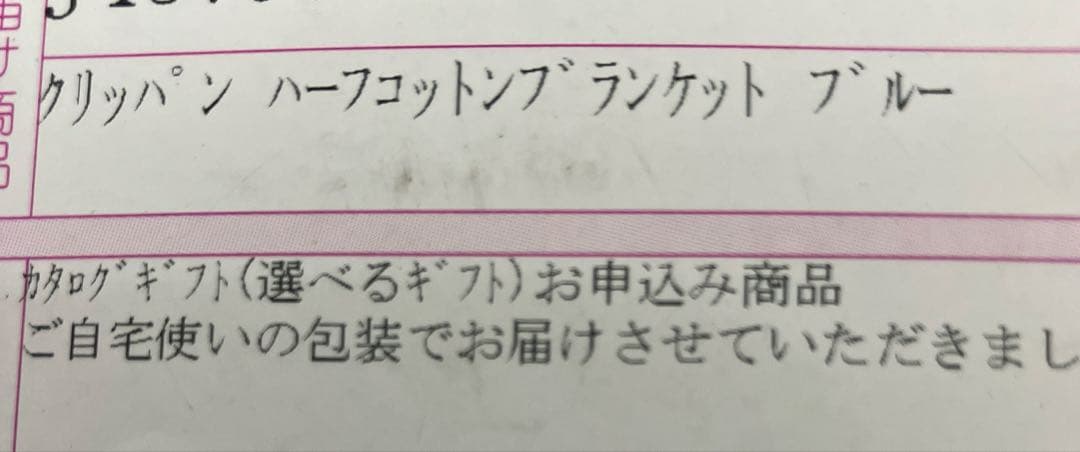 クリッパン ハーフコットンブランケット ブルー
カタログギフト(選べるギフト)お申込み商品
ご自宅使いの包装でお届けさせていただきまし